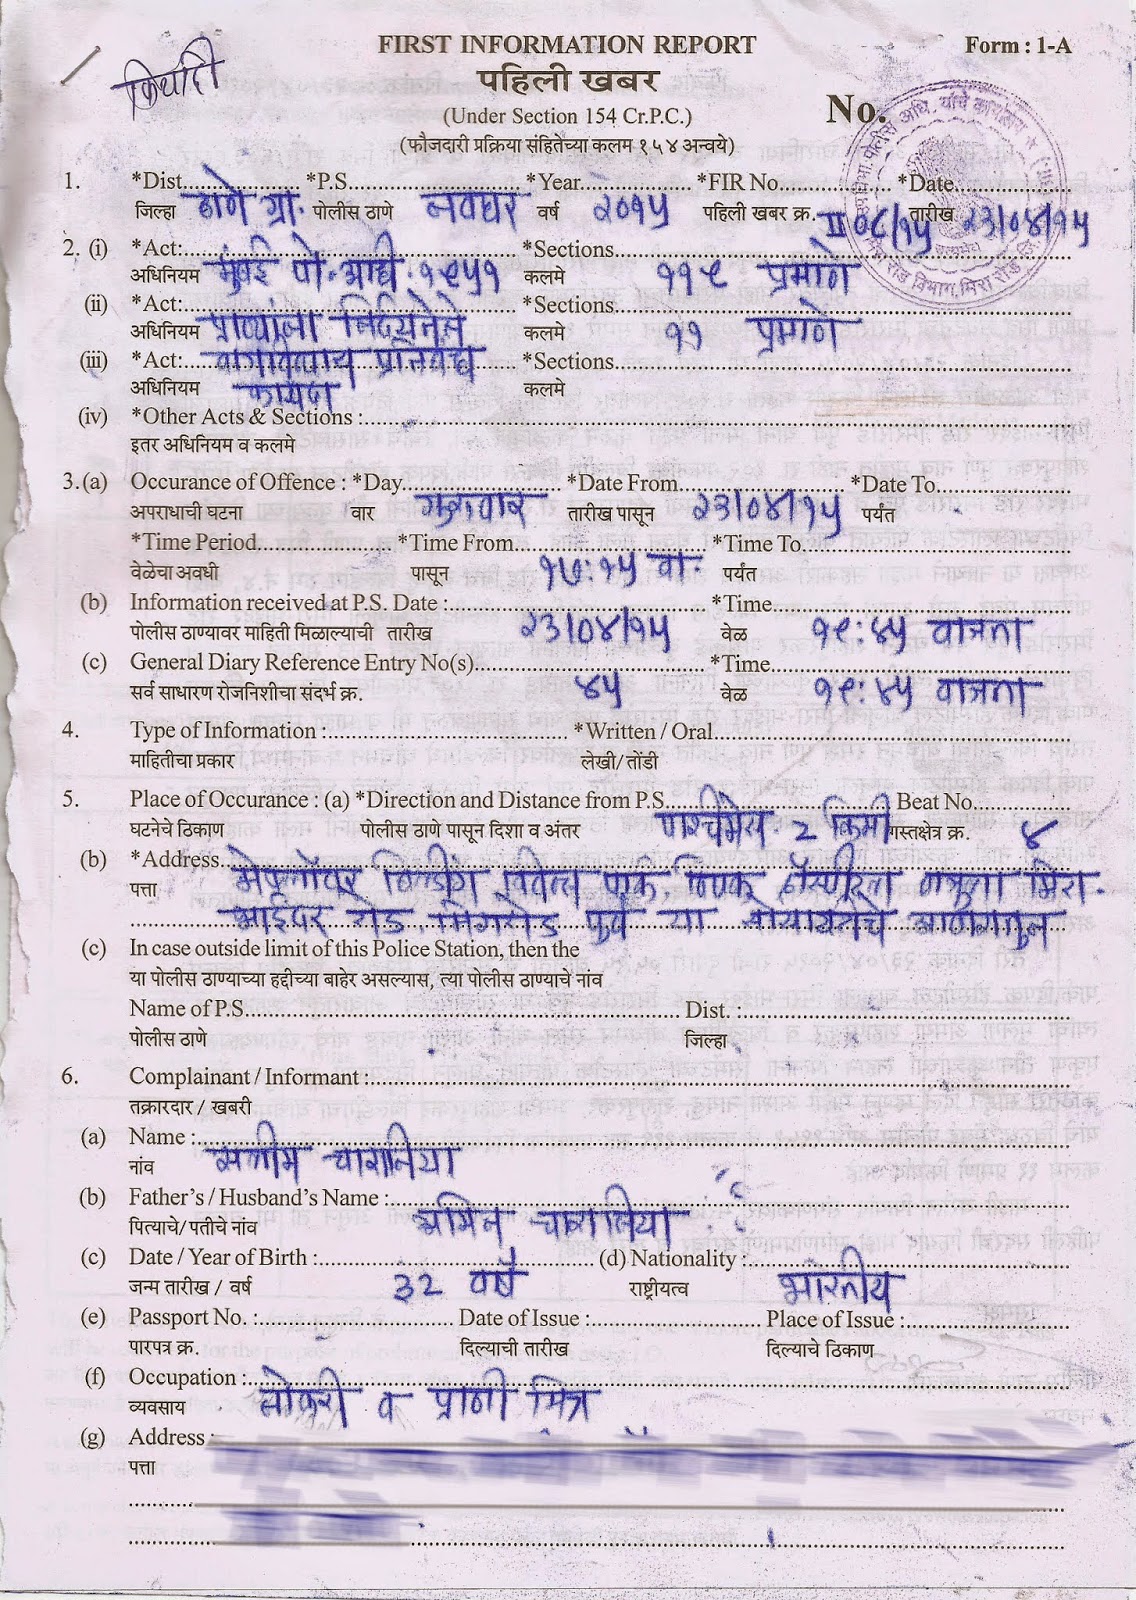 फिर्यादी
FIRST INFORMATION REPORT Form : 1-A
पहिली खबर
(Under Section 154 Cr.P.C.) No.
(फौजदारी प्रक्रिया संहितेच्या कलम १५४ अन्वये)
1. *Dist. *P.S. *Year *FIR No. *Date
जिल्हा ठाणे ग्रा. पोलीस ठाणे नवघर वर्ष २०१५ पहिली खबर क्र. II ०८/१५ तारीख २३/०४/१५
2. (i) *Act: *Sections
अधिनियम मुंबई पो. अधि. १९५१ कलमे ११९ प्रमाणे
(ii) *Act: *Sections
अधिनियम प्राण्यांना निर्दयतेने कलमे ११ प्रमाणे
(iii) *Act: वागविण्यास प्रतिबंध *Sections
अधिनियम कायदा कलमे
(iv) *Other Acts & Sections :
इतर अधिनियम व कलमे
3.(a) Occurance of Offence : *Day *Date From *Date To
अपराधाची घटना वार गुरुवार तारीख पासून २३/०४/१५ पर्यंत
*Time Period *Time From *Time To
वेळेचा अवधी पासून १७:१५ वा. पर्यंत
(b) Information received at P.S. Date : *Time
पोलीस ठाण्यावर माहिती मिळाल्याची तारीख २३/०४/१५ वेळ १९:४५ वाजता
(c) General Diary Reference Entry No(s). *Time
सर्व साधारण रोजनिशीचा संदर्भ क्र. ४५ वेळ १९:४५ वाजता
4. Type of Information : *Written / Oral
माहितीचा प्रकार लेखी/ तोंडी
5. Place of Occurance : (a) *Direction and Distance from P.S. Beat No.
घटनेचे ठिकाण पोलीस ठाणे पासून दिशा व अंतर पश्चिमेस २ किमी गस्तक्षेत्र क्र. ४
(b) *Address
पत्ता बिल्डींग पार्क दिपक हॉस्पीटल मिरा-
भाईंदर रोड, मिरारोड पुर्व या
(c) In case outside limit of this Police Station, then the
या पोलीस ठाण्याच्या हद्दीच्या बाहेर असल्यास, त्या पोलीस ठाण्याचे नांव
Name of P.S. Dist. :
पोलीस ठाणे जिल्हा
6. Complainant / Informant :
तक्रारदार / खबरी
(a) Name :
नांव सलीम चारानिया
(b) Father's / Husband's Name :
पित्याचे/ पतीचे नांव अमिन चारानिया
(c) Date / Year of Birth : (d) Nationality :
जन्म तारीख / वर्ष ३२ वर्षे राष्ट्रीयत्व भारतीय
(e) Passport No. : Date of Issue : Place of Issue :
पारपत्र क्र. दिल्याची तारीख दिल्याचे ठिकाण
(f) Occupation :
व्यवसाय नोकरी व प्राणी मित्र
(g) Address :
पत्ता